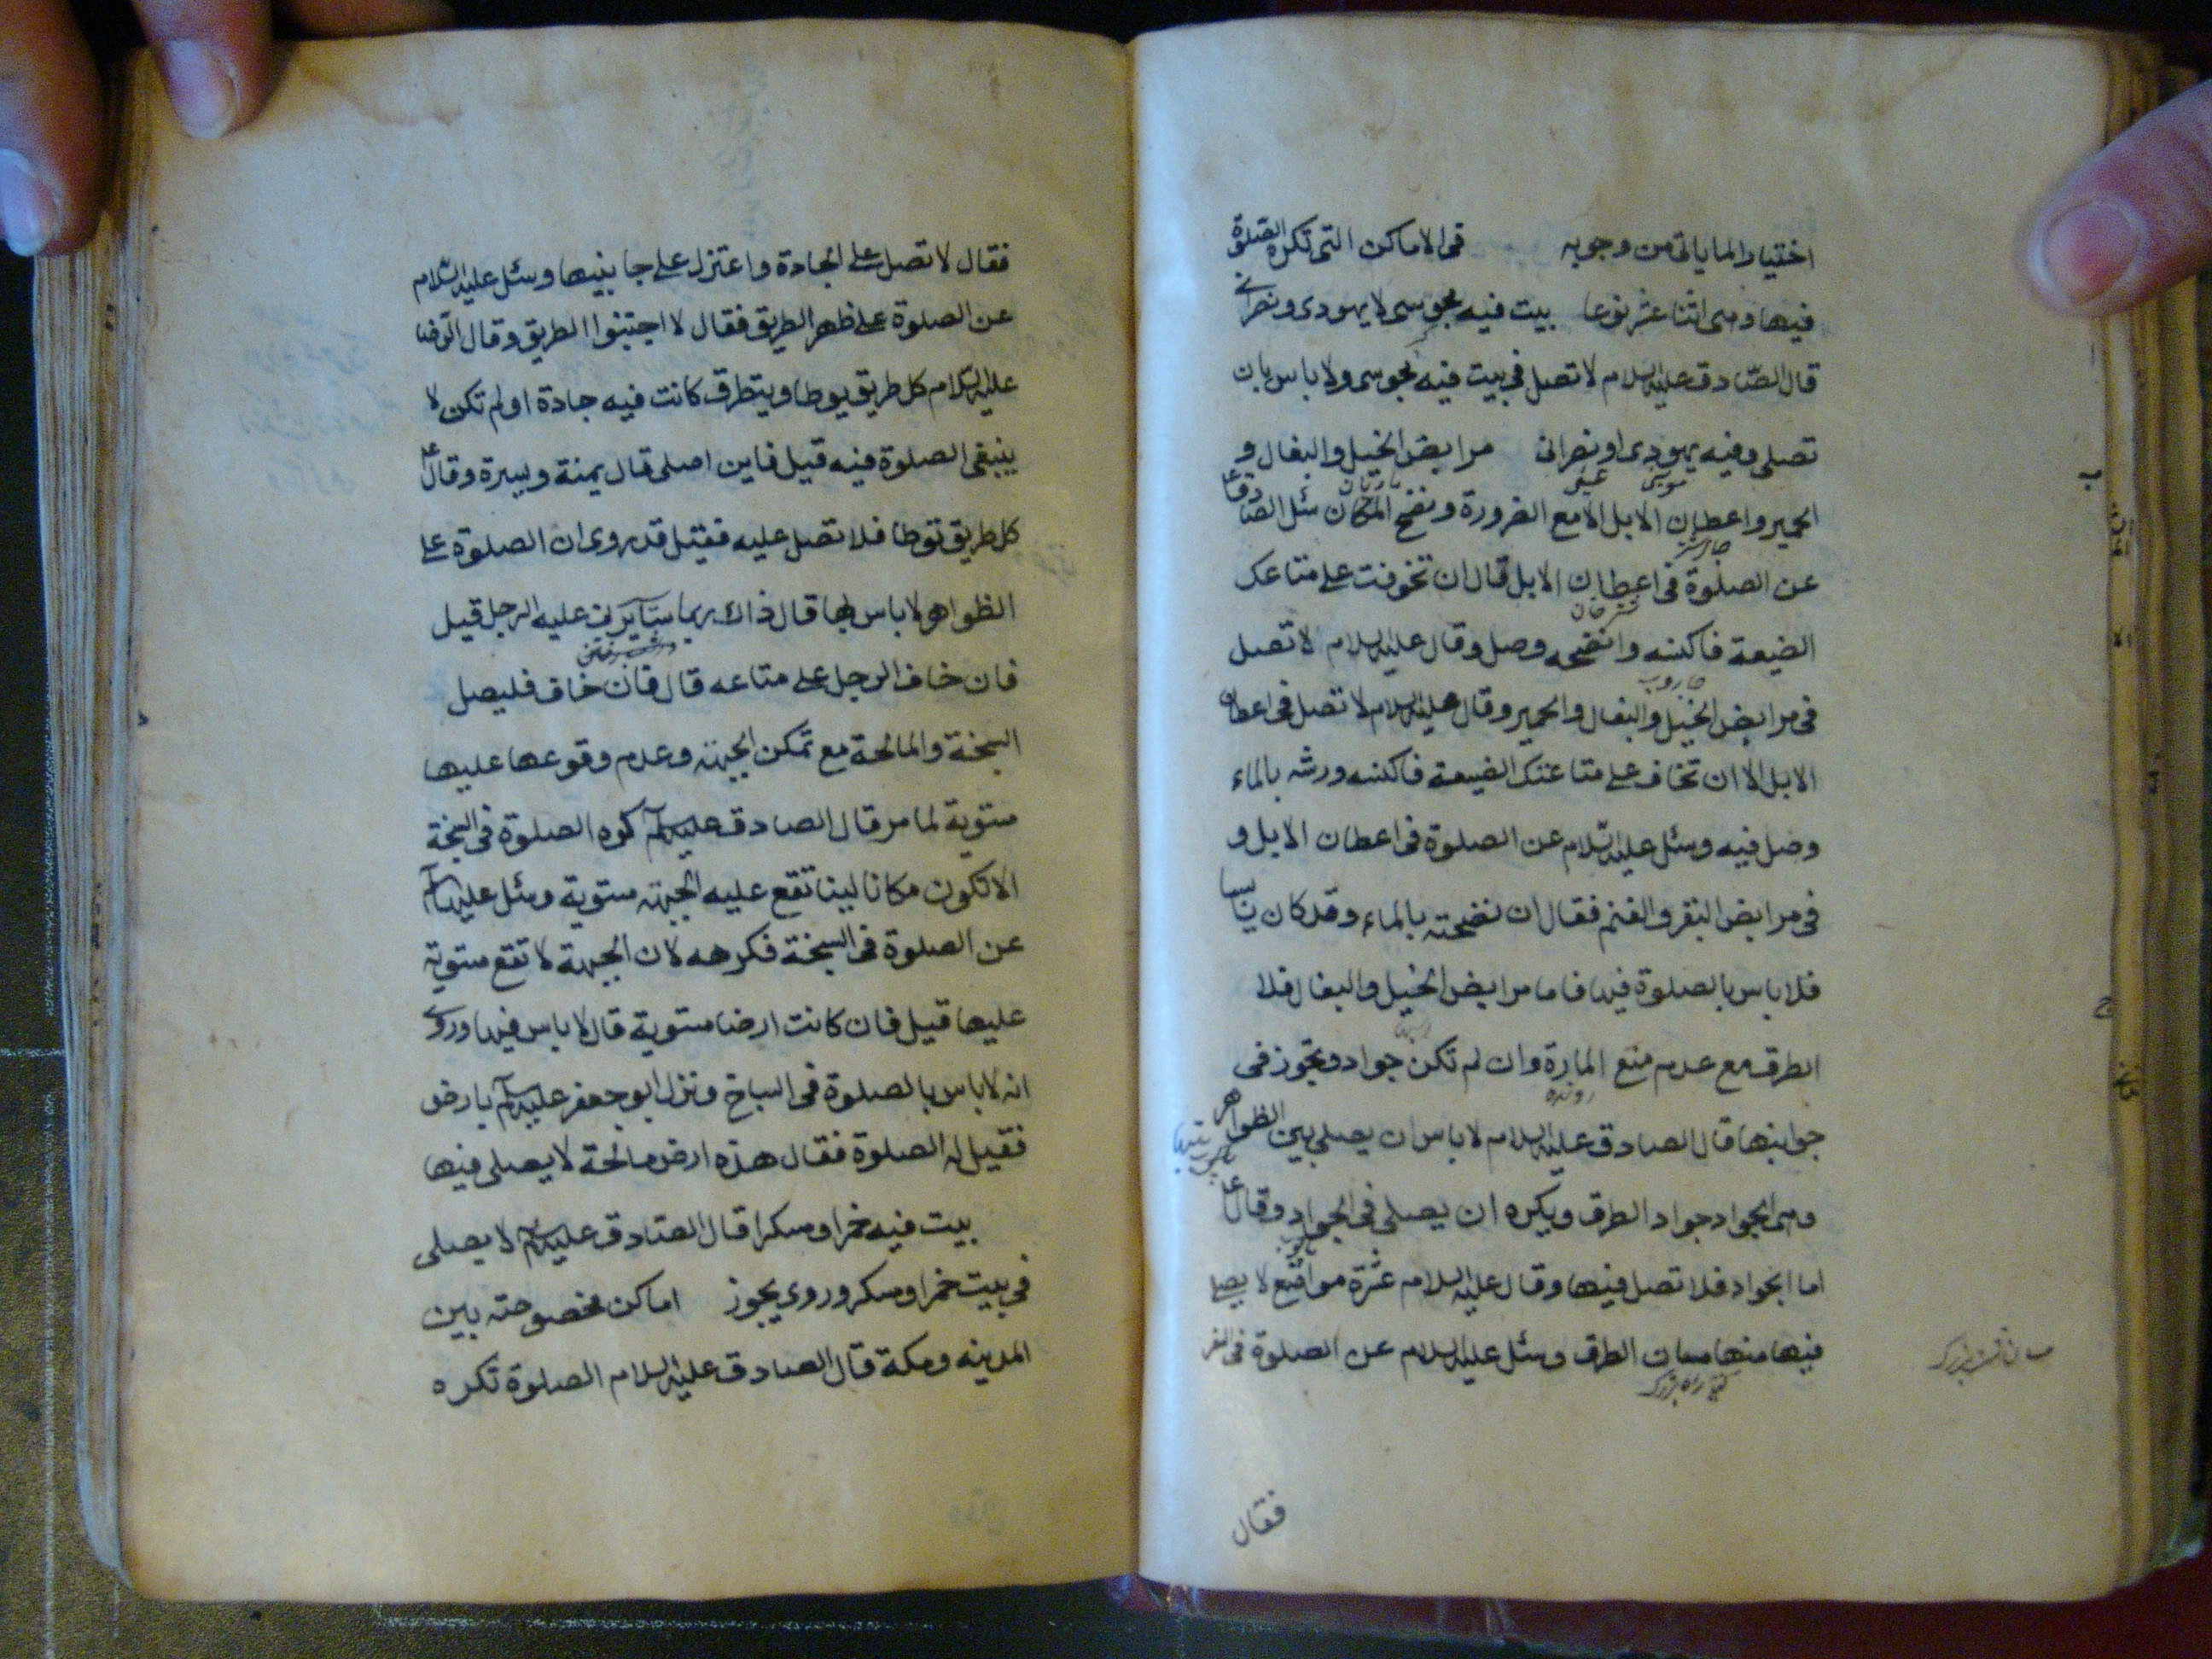 اختيارا لما ياتى من وجوبه فى الاماكن التى تكره الصلوة
فيها وهى اثنا عشر نوعا بيت فيه مجوسى لا يهودى ونصرانى
قال الصادق عليه السلام لا تصل فى بيت فيه مجوسى ولا باس بان
تصلى وفيه يهودى او نصرانى مرابض الخيل والبغال و
الحمير واعطان الابل الا مع الضرورة ونضح المكان سئل الصادق ع
عن الصلوة فى اعطان الابل قال ان تخوفت على متاعك
الضيعة فاكنسه وانضحه وصل وقال عليه السلام لا تصل
فى مرابض الخيل والبغال والحمير وقال عليه السلام لا تصل فى اعطان
الابل الا ان تخاف على متاعك الضيعة فاكنسه ورشه بالماء
وصل فيه وسئل عليه السلام عن الصلوة فى اعطان الابل و
فى مرابض البقر والغنم فقال ان نضحته بالماء وقد كان يابسا
فلا باس بالصلوة فيها فاما مرابض الخيل والبغال فلا
الطرق مع عدم منع المارة وان لم تكن جواد ويجوز فى
رونده
جوانبها قال الصادق عليه السلام لا باس ان يصلى بين الظواهر
وهى الجواد جواد الطرق ويكره ان يصلى فى الجواد وقال ع
اما الجواد فلا تصل فيها وقال عليه السلام عشرة مواضع لا يصلى
فيها منها مسان الطرق وسئل عليه السلام عن الصلوة فى السفر
فقال
فقال لا تصل على الجادة واعتزل على جانبيها وسئل عليه السلام
عن الصلوة على ظهر الطريق فقال لا اجتنبوا الطريق وقال الرضا
عليه السلام كل طريق يوطا ويتطرق كانت فيه جادة او لم تكن لا
ينبغى الصلوة فيه قيل فاين اصلى قال يمنة ويسرة وقال ع
كل طريق توطا فلا تصل عليه فقيل قد روى ان الصلوة على
الظواهر لا باس بها قال ذاك ربما سايرنى عليه الرجل قيل
فان خاف الرجل على متاعه قال فان خاف فليصل
السبخة والمالحة مع تمكن الجبهة وعدم وقوعها عليها
مستوية لما مر قال الصادق عليه السلام كره الصلوة فى السبخة
الا تكون مكانا لينا تقع عليه الجبهة مستوية وسئل عليه السلام
عن الصلوة فى السبخة فكرهه لان الجبهة لا تقع مستوية
عليها قيل فان كانت ارضا مستوية قال لا باس فيها وروى
انه لا باس بالصلوة فى السباخ ونزل ابو جعفر عليه السلام بارض
فقيل له الصلوة فقال هذه ارض مالحة لا يصلى فيها
بيت فيه خمر او مسكر قال الصادق عليه السلام لا يصلى
فى بيت خمر او مسكر وروى يجوز اماكن مخصوصة بين
المدينه ومكة قال الصادق عليه السلام الصلوة تكره